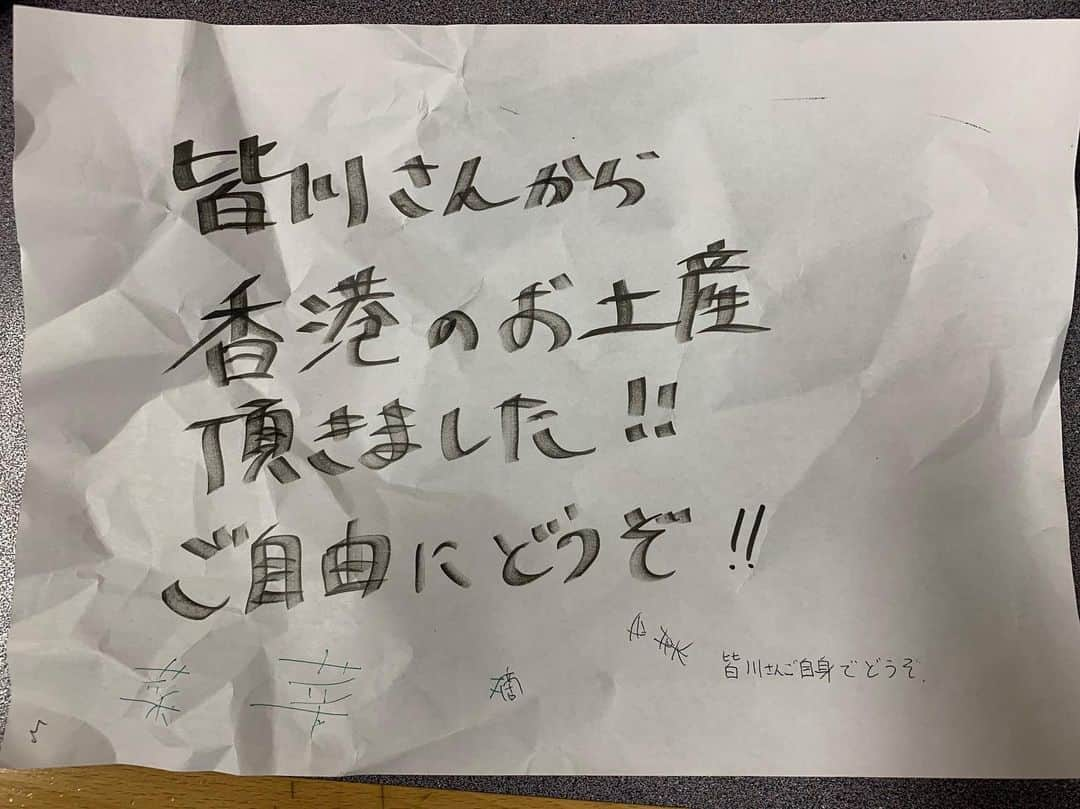 皆川さんから
香港のお土産
頂きました!!
ご自由にどうぞ!!
皆川さんご自身でどうぞ.